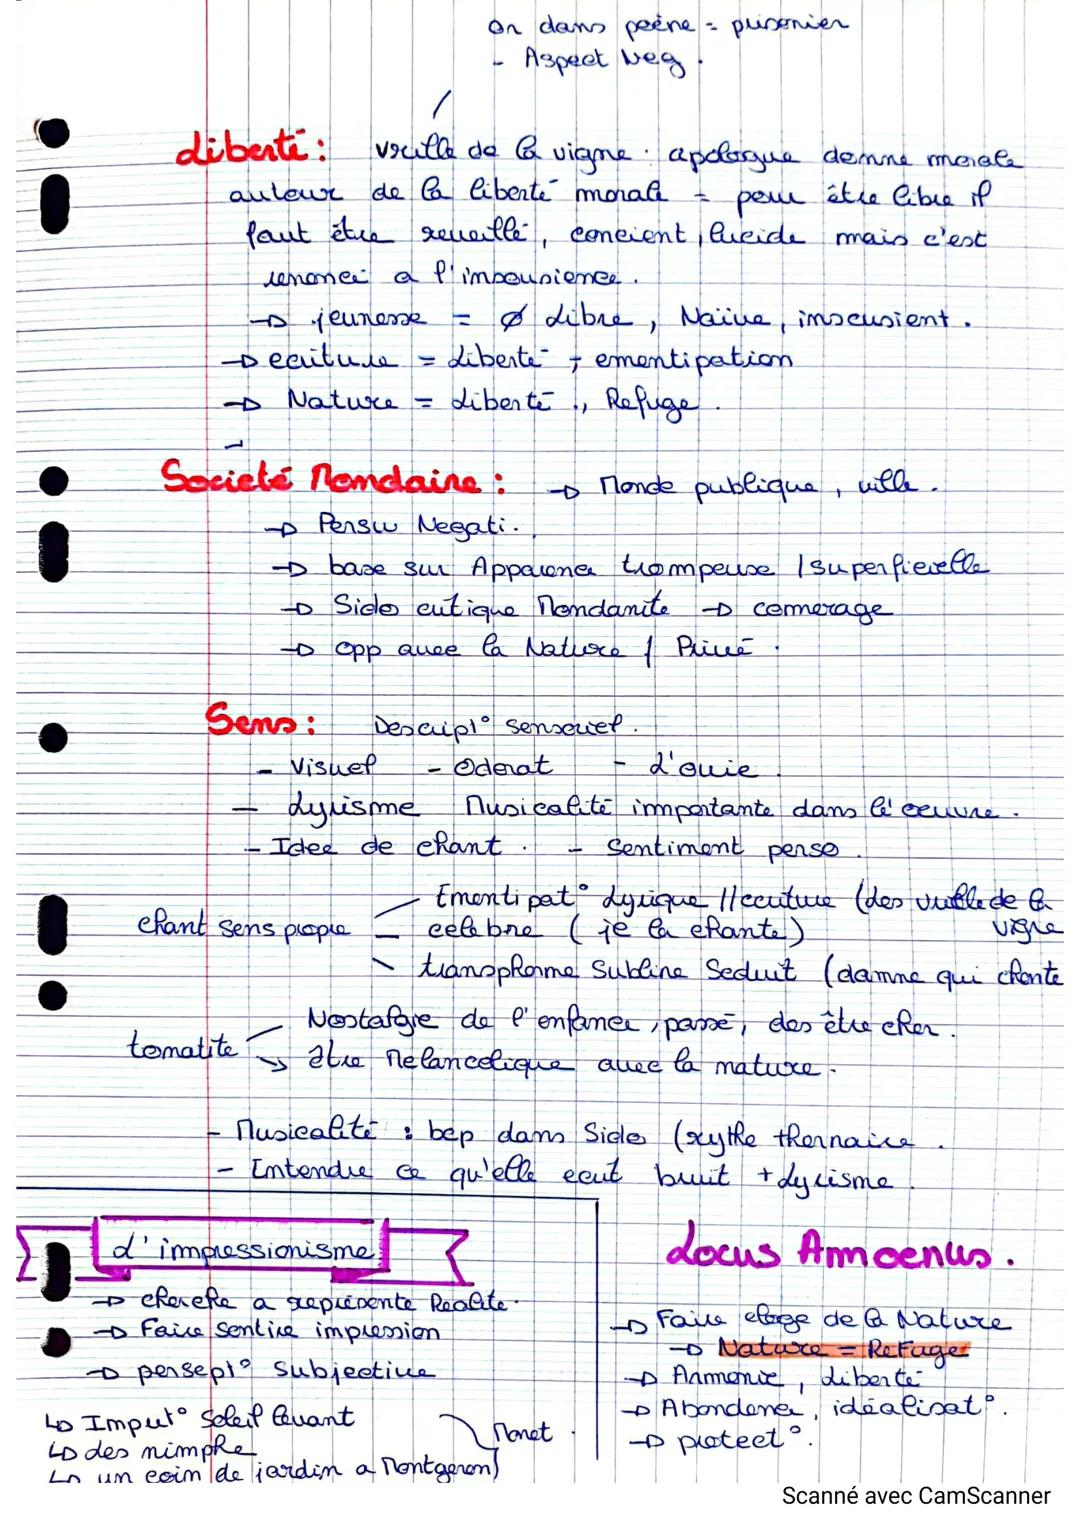 on dans peène = prisonier
- Aspect Neg.
Liberté : vrille de la vigne : apologue donne morale
autour de la liberté morale = pour être libre il
faut être reveillé, concient, lucide mais c'est
renoncé a l'insousience.
→ jeunesse = Ø Libre, Naïve, inscusient.
→ ecriture = Liberté + ementipation
→ Nature = Liberté, Refuge.
→
Societé Mondaine : → Monde publique, ville.
→ Persu Negati.
→ base sur Apparence trompeuse / superficielle
→ Sido critique Mondanite → comerage
→ opp avec la Nature / Privé.
Sens : Descript° sensoriel.
- Visuel - Odorat - L'ouie.
- Lyrisme Musicalité importante dans l'oeuvre.
- Idee de chant. - Sentiment perso.
Ementipat° Lyrique // ecriture (les vrille de la
vigne
chant sens propre - celebre (je la chante)
transphorme Subline Seduit (damne qui chante
Nostalgie de l'enfance, passé, des être cher.
tonatite → être Melancolique avec la nature.
- Musicalité : bcp dans Sido (rythe thernaire.
- Entendre ce qu'elle ecrit bruit + Lyrisme.
L'impressionisme
→ cherche a représente Réalite.
→ Faire sentire impression
→ persept° subjective
↳ Impret° Soleil Levant
↳ Les nimphe
Monet.
↳ un coin de jardin a Montgeron)
Locus Amoenus.
→ Faire eloge de la Nature
→ Nature = Refuge
→ Armonie, Liberté
→ Abondance, idéalisat°.
→ protect°.
Scanné avec CamScanner